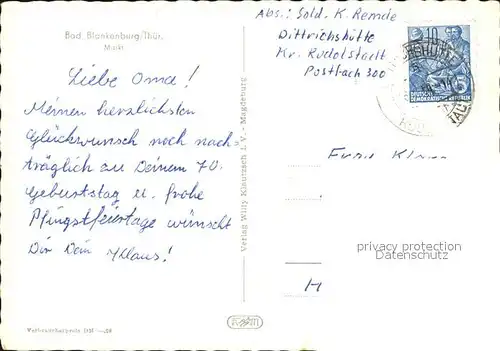 Bad Blankenburg/Thür.
Markt
Liebe Oma!
Meinen herzlichsten
Glückwunsch noch nach-
träglich zu Deinem 70.
Geburtstag u. frohe
Pfingstfeiertage wünscht
Dir Dein Klaus!
Verlag Willy Klautzsch I. V. - Magdeburg
Abs.: Sold. K. Remde
Dittrichshütte
Kr. Rudolstadt
Postfach 300
10
DEUTSCHE
DEMOKRATISCHE REPUBLIK
5
Frau
privacy protection
Datenschutz